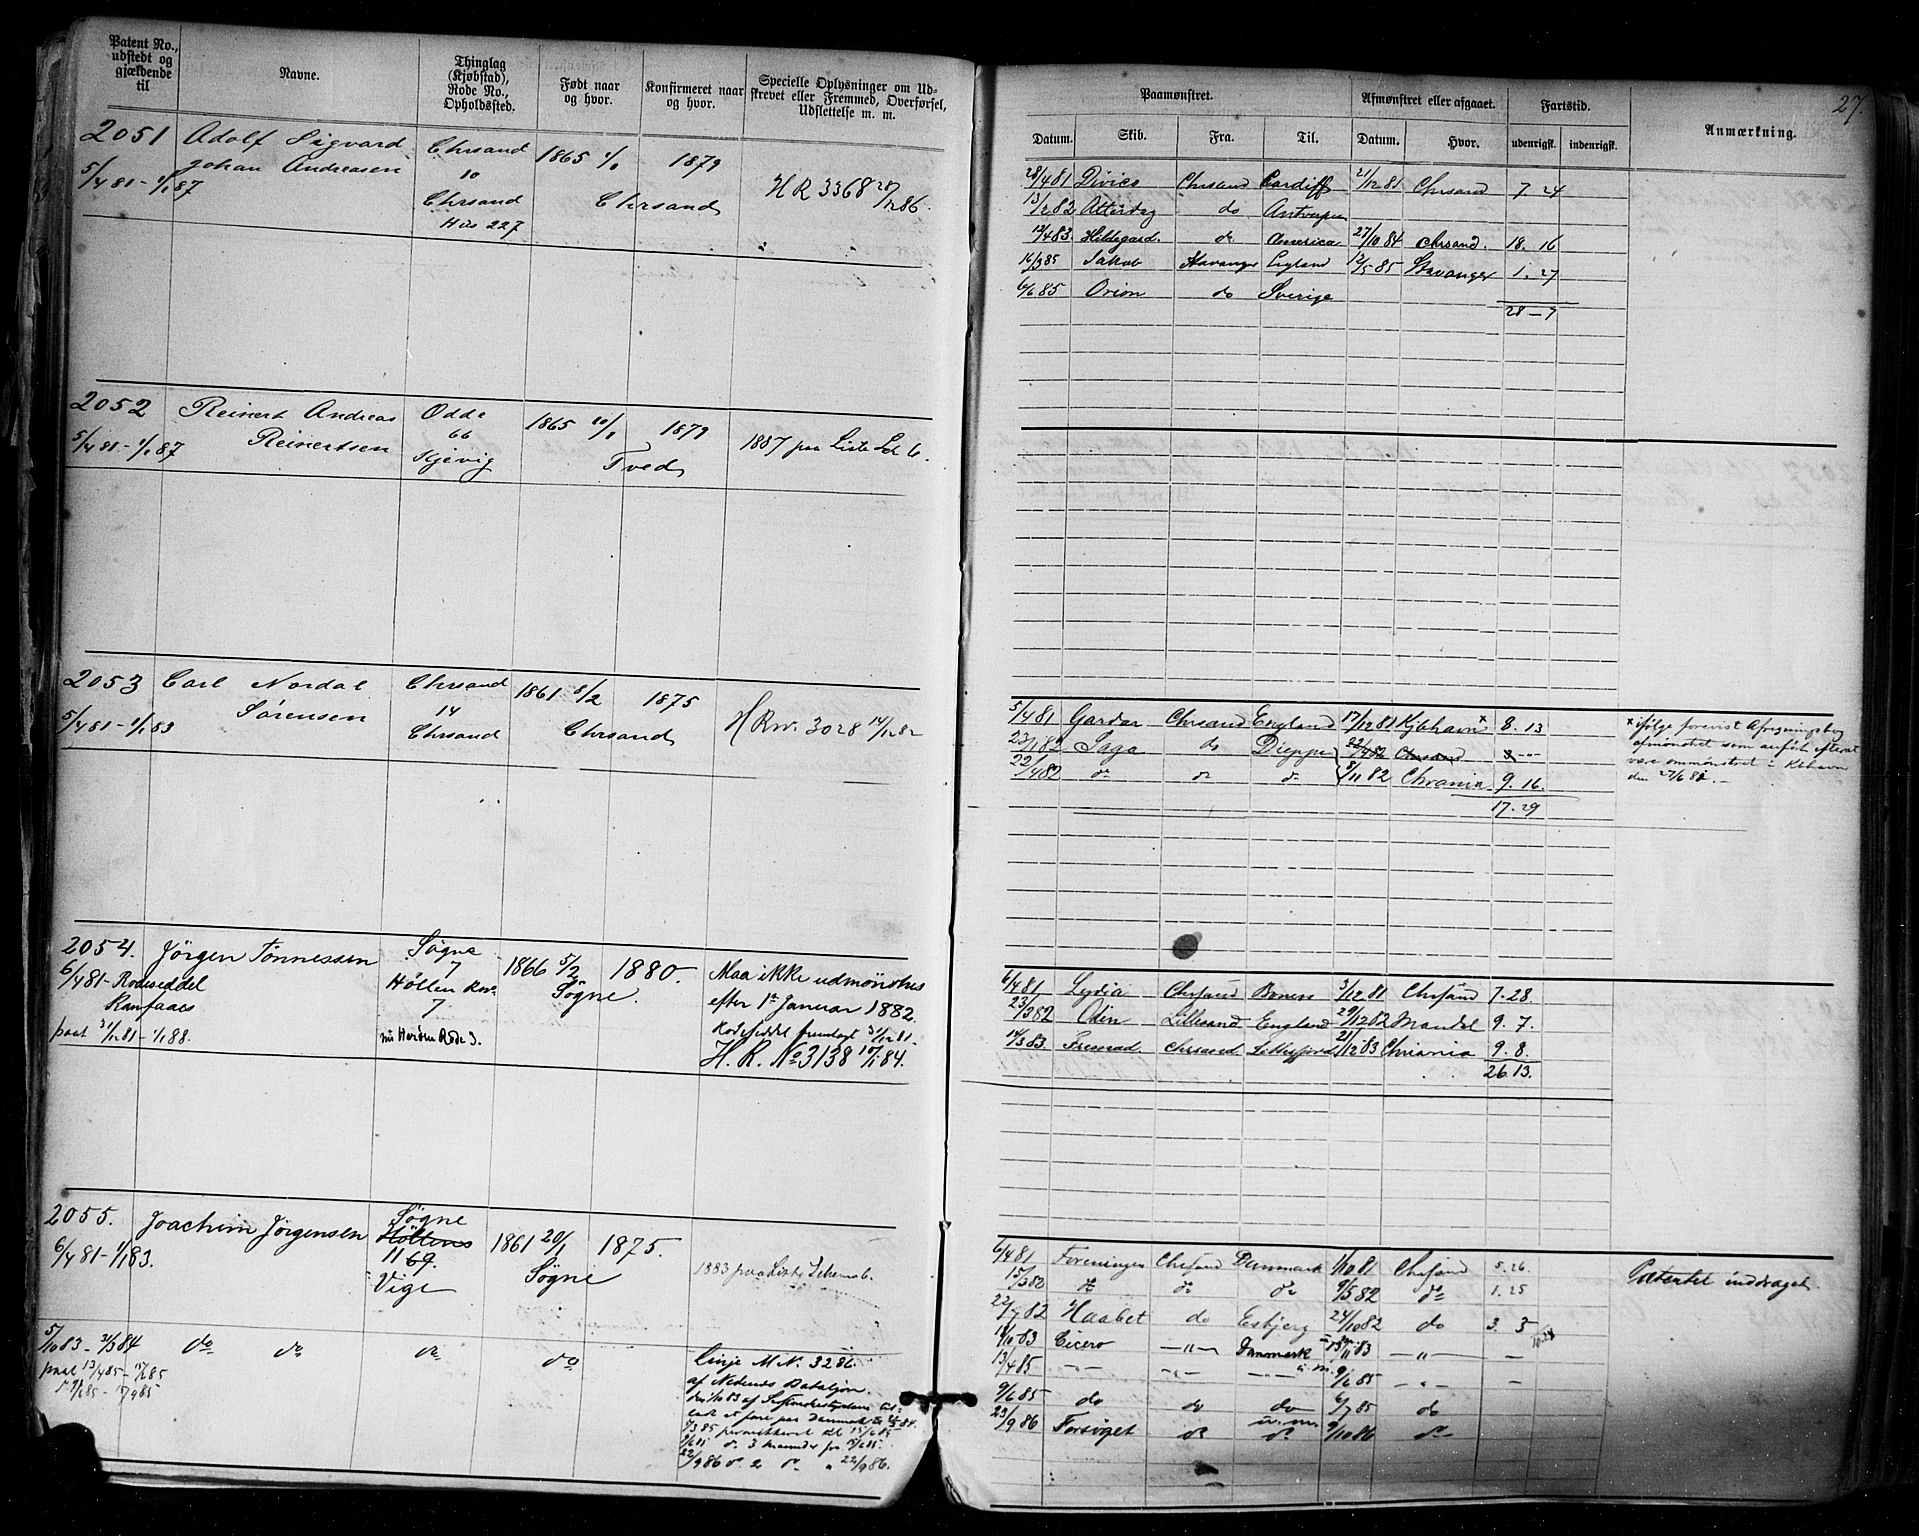 Patent No.,
udstedt og
gjældende
til
Navne.
Thinglag
(Kjøbstad),
Rode No.,
Opholdssted.
Født naar
og hvor.
Konfirmeret naar
og hvor.
Specielle Oplysninger om Ud-
skrevet eller Fremmed, Overførsel,
Udslettelse m. m.
2051 Adolf Sigvard Chrsand 1865 1879
5/4 81 - 1/1 87 Johan Andreasen 10 HR 3368 28/12 86.
Chrsand Chrsand
Hus 227
2052 Reinert Andreas Odde 1865 1879
5/4 81 - 1/1 87 Reinertsen 66 1887 paa Liste
Kjevig Tved
2053 Carl Nordal Chrsand 1861 8/2 1875
5/4 81 - 1/1 83 Sørensen 14 3028 14/12 82
Chrsand Chrsand
2054. Jörgen Tönnessen Søgne 1866 5/2 1880. Maa ikke udmønstres
6/4 81 - Rodeseddel 7 Søgne. efter 1ste Januar 1882.
Høllen
7
paat 31/12 81 - 1/1 88. nu Rode 3. Rodeseddel 31/12 81 -
H. R. No 3138 10/1 84.
2055. Joachim Jörgensen Søgne 1861 20/1 1875.
6/4 81 - 1/1 83. Høllens Søgne 1883 paa Liste Schema 6.
11 69.
Vige
5/10 83 - 31/3 84 do do do do Linje M N. 3286.
paat 13/4 85 - 15/6 85 af Nedenes Bataljon.
22/9 86 do 2 do " 22/9 86.
27.
Paamønstret.
Afmønstret eller afgaaet.
Fartstid.
Anmærkning.
Datum.
Skib.
Fra.
Til.
Datum.
Hvor.
udenrigsk.
indenrigsk.
28/4 81 Divico Chrsand Cardiff 21/12 81 Chrsand 7 24
13/2 82 Atterdag do Antverpen
12/4 83. Hildegard. do America 27/10 84 Chrsand. 18. 16
16/3 85 Jakob Stavanger England 12/5 85 Stavanger 1. 27
6/6 85 Orion do Sverige
28 - 7
5/4 81 Gardar Chrsand England 17/12 81 Kjbhavn x 8. 13 x ifølge forevist Afregningsbog
23/1 82 Saga do Dieppe 22/4 82 Chrsand afmønstret som anført efter at
22/4 82 do do do 8/11 82 Chrania 9. 16. være ommønstret i Kbhavn
17. 29 den 27/6 81. -
6/4 81 Lydia Chrsand 3/12 81 Chrsand 7. 28.
23/3 82 Odin Lillesand England 29/12 82 Mandal 9. 7.
14/3 83. Fremad. Chrsand 21/12 83 Chriania 9. 8.
26. 13.
6/4 81 Foreningen Chrsand Danmark 1/10 81 Chrsand 5. 26. Patentet inddraget.
15/3 82 do do do 9/5 82 do 1. 25
22/7 82 Haabet do Esbjerg 24/10 82 do 3. 3
1/10 83 Cicero - " - Danmark - " - -
13/4 85 - " - - " - - " - 9/6 85 - " - -
9/6 85 do do do 6/7 85 do
23/9 86 Forsøget do do 9/10 86 do